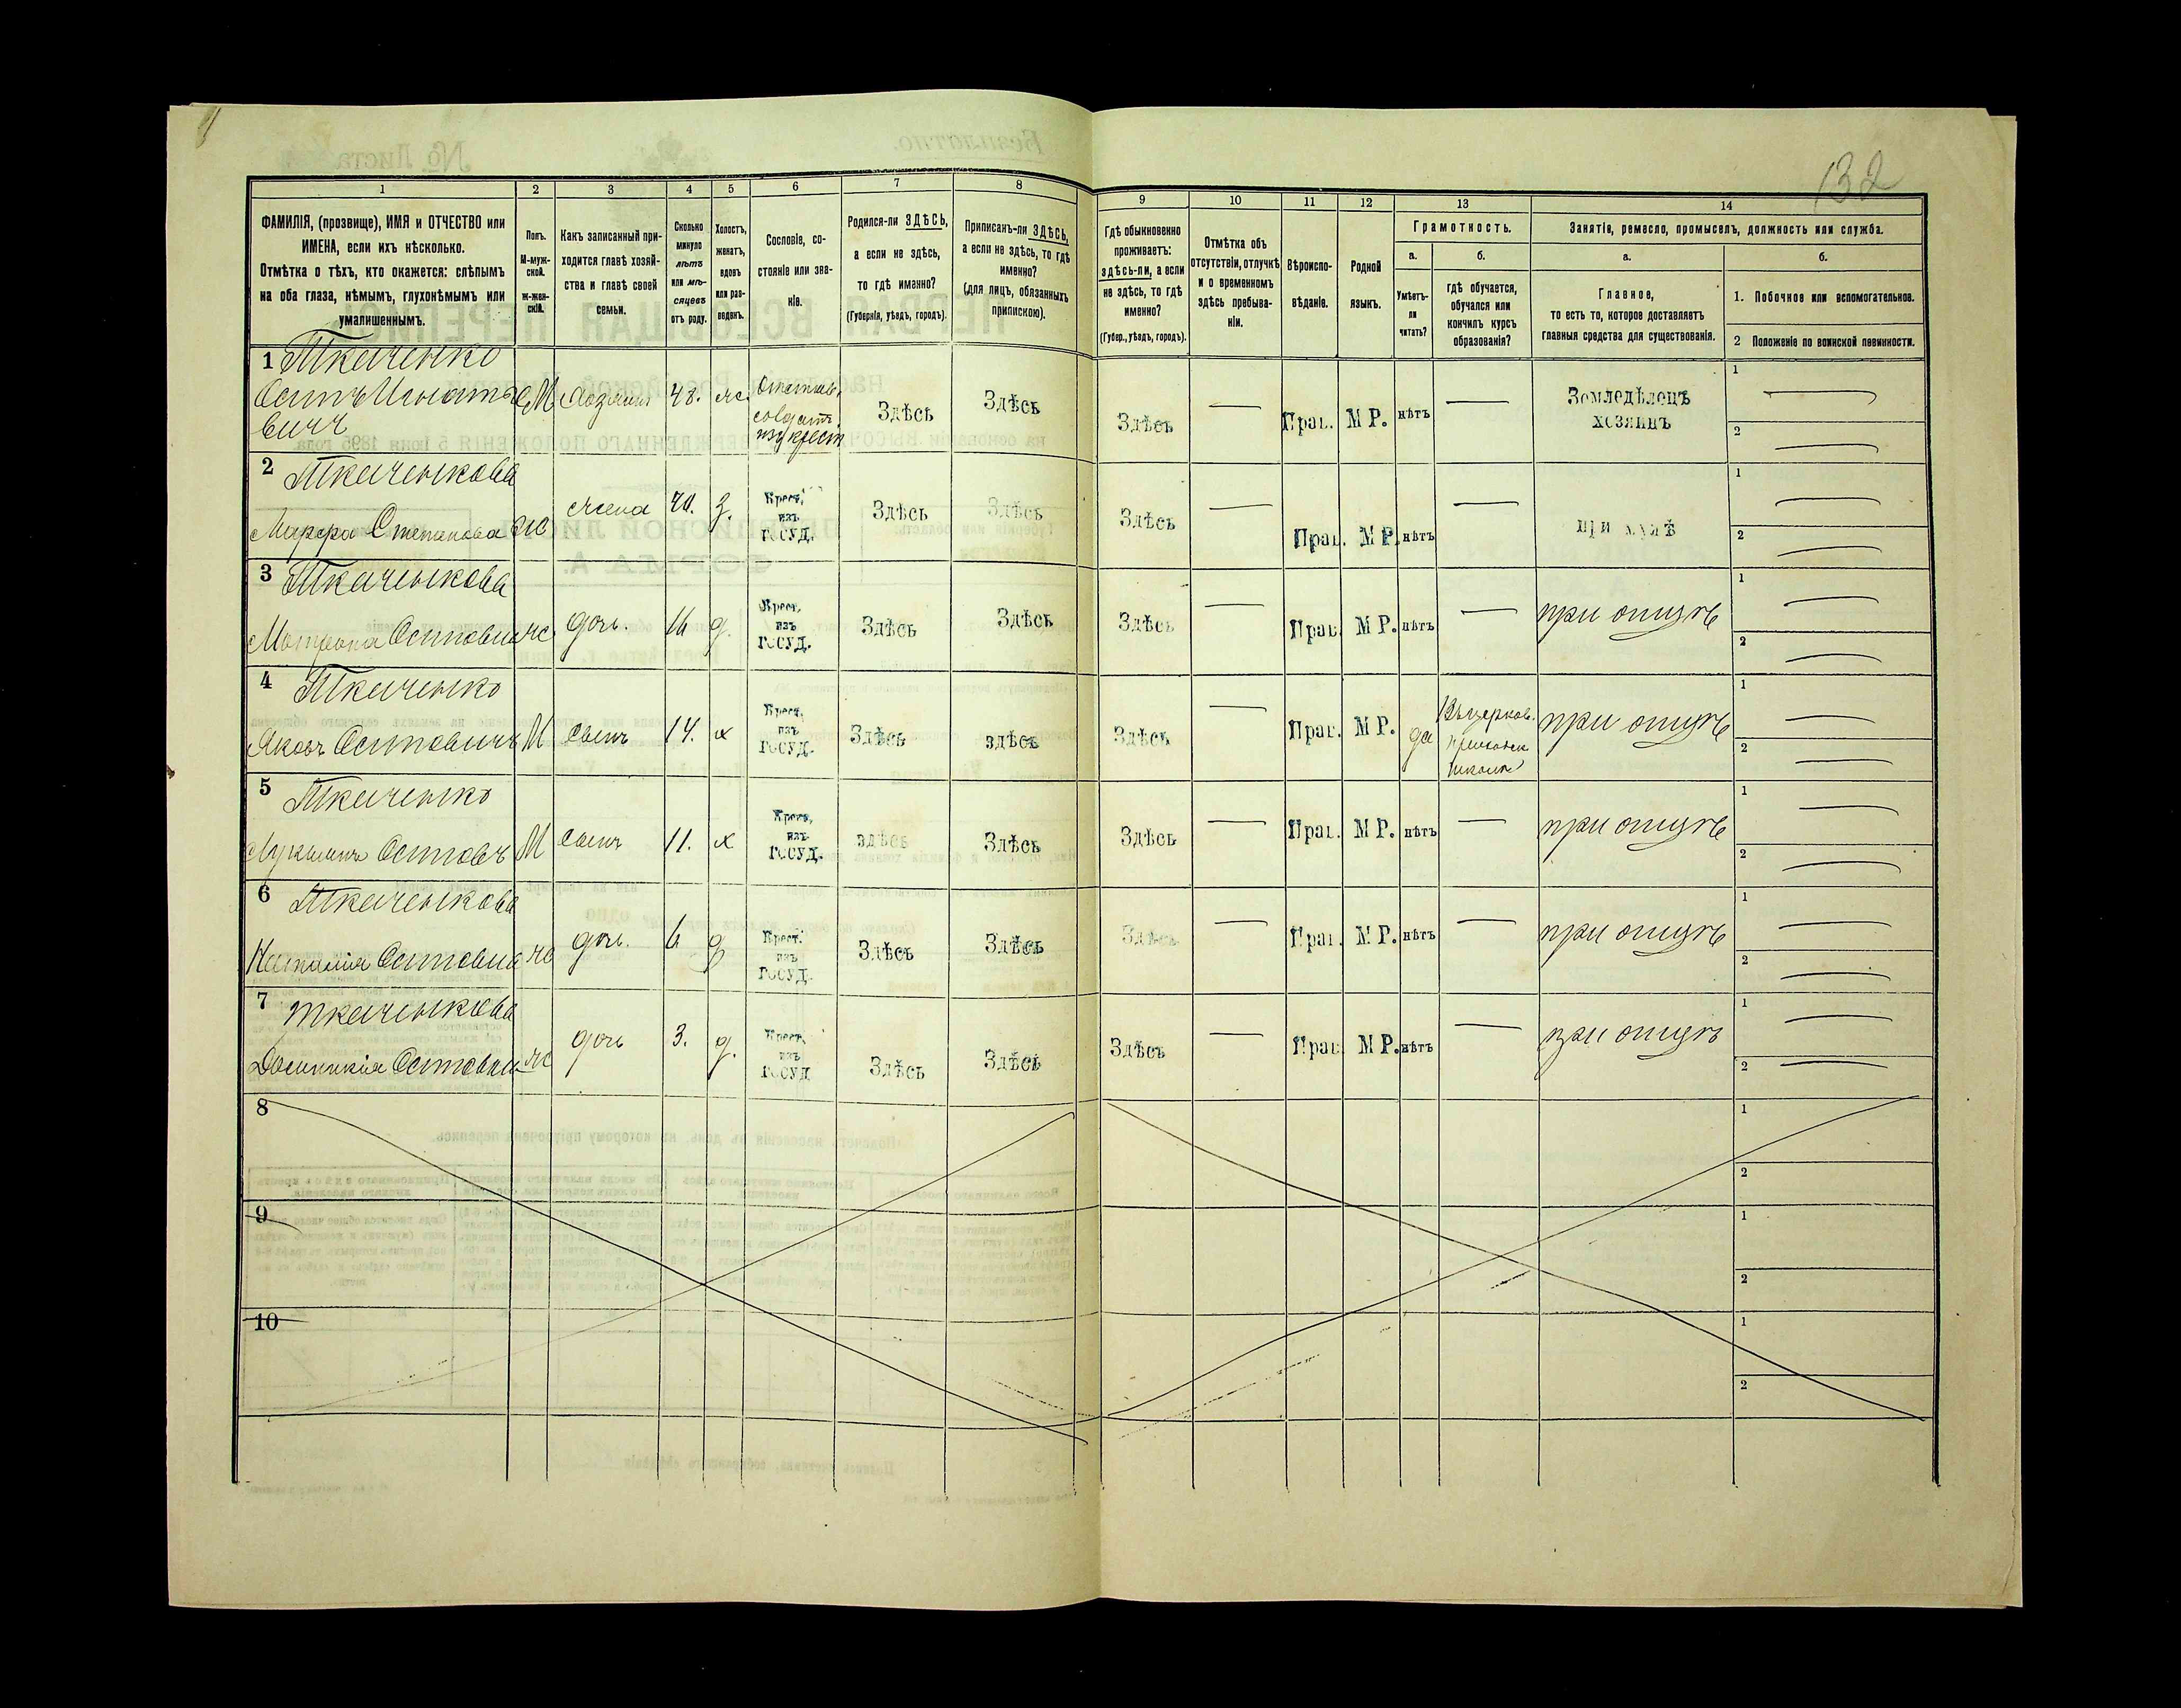 132
1 2 3 4 5 6 7 8 9 10 11 12 13 14
ФАМИЛІЯ, (прозвище), ИМЯ и ОТЧЕСТВО или
ИМЕНА, если ихъ нѣсколько.
Отмѣтка о тѣхъ, кто окажется: слѣпымъ
на оба глаза, нѣмымъ, глухонѣмымъ или
умалишеннымъ.
Полъ.
М-муж-
ской.
ж-жен-
скій.
Какъ записанный при-
ходится главѣ хозяй-
ства и главѣ своей
семьи.
Сколько
минуло
лѣтъ
или мѣ-
сяцевъ
отъ роду.
Холостъ,
женатъ,
вдовъ
или раз-
веденъ.
Сословіе, со-
стояніе или зва-
ніе.
Родился-ли ЗДѢСЬ,
а если не здѣсь,
то гдѣ именно?
(Губернія, уѣздъ, городъ).
Приписанъ-ли ЗДѢСЬ,
а если не здѣсь, то гдѣ
именно?
(для лицъ, обязанныхъ
припискою).
Гдѣ обыкновенно
проживаетъ:
здѣсь-ли, а если
не здѣсь, то гдѣ
именно?
(Губер., уѣздъ, городъ).
Отмѣтка объ
отсутствіи, отлучкѣ
и о временномъ
здѣсь пребыва-
ніи.
Вѣроиспо-
вѣданіе.
Родной
языкъ.
Грамотность.
а.
Умѣетъ-
ли
читать?
б.
гдѣ обучается,
обучался или
кончилъ курсъ
образованія?
Занятіе, ремесло, промыселъ, должность или служба.
а.
Главное,
то есть то, которое доставляетъ
главныя средства для существованія.
б.
1. Побочное или вспомогательное.
2 Положеніе по воинской повинности.
1 Ткаченко
Осипъ Игнатье
вичъ
М хозяинъ 48. ж.
Отставн.
солдатъ
изъ крест.
Здѣсь Здѣсь Здѣсь — Прав. М Р. нѣтъ —
Земледѣлецъ
хозяинъ
1 —
2 —
2 Ткаченкова
Марфа Степанова ж жена 40. з.
Крест.
изъ
ГОСУД.
Здѣсь Здѣсь Здѣсь — Прав. М Р. нѣтъ — при мужѣ
1 —
2 —
3 Ткаченкова
Матрона Осиповна ж дочь. 16 д.
Крест.
изъ
ГОСУД.
Здѣсь Здѣсь Здѣсь — Прав. М Р. нѣтъ — при отцѣ
1 —
2 —
4 Ткаченко
Яковъ Осиповичъ М сынъ 14. х
Крест.
изъ
ГОСУД.
Здѣсь здѣсь Здѣсь — Прав. М Р. да
Въ церков.
приходск
школѣ
при отцѣ
1 —
2 —
5 Ткаченко
Лукьянъ Осиповъ М сынъ 11. х
Крест.
изъ
ГОСУД.
здѣсь Здѣсь Здѣсь — Прав. М Р. нѣтъ — при отцѣ
1 —
2 —
6 Ткаченкова
Наталія Осиповна ж дочь. 6 д
Крест.
изъ
ГОСУД.
Здѣсь Здѣсь Здѣсь — Прав. М Р. нѣтъ — при отцѣ
1 —
2 —
7 Ткаченкова
Доминикія Осиповна ж дочь 3. д.
Крест.
изъ
ГОСУД
Здѣсь Здѣсь Здѣсь — Прав. М Р. нѣтъ — при отцѣ
1 —
2 —
8
1
2
9
1
2
10
1
2